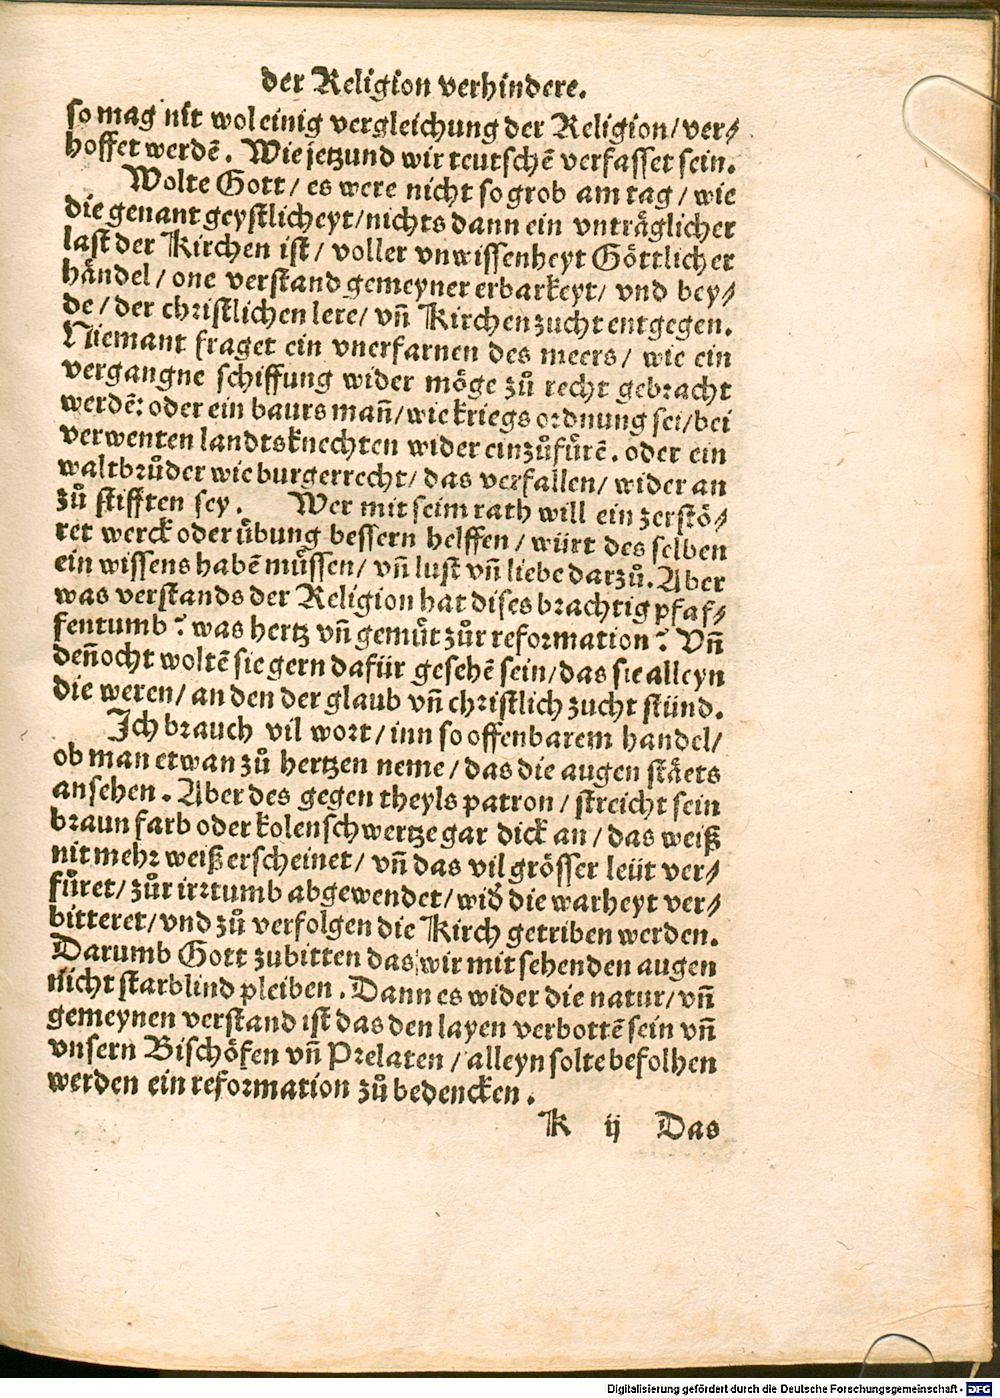 der Religion verhindere.
so mag nit wol einig vergleichung der Religion/ ver⸗
hoffet werdē. Wie jetzund wir teutschē verfasset sein.
Wolte Gott/ es were nicht so grob am tag/ wie
die genant geystlicheyt/ nichts dann ein vnträglicher
last der Kirchen ist/ voller vnwissenheyt Göttlicher
händel/ one verstand gemeyner erbarkeyt/ vnd bey⸗
de/ der christlichen lere/ vñ Kirchen zucht entgegen.
Niemant fraget ein vnerfarnen des meers/ wie ein
vergangne schiffung wider möge zů recht gebracht
werdē: oder ein baurs mañ/ wie kriegs ordnung sei/ bei
verwenten landtsknechten wider einzůfürē. oder ein
waltbrůder wie burgerrecht/ das verfallen/ wider an
zů stifften sey. Wer mit seim rath will ein zerstö⸗
ret werck oder übung bessern helffen/ würt des selben
ein wissens habē müssen/ vñ lust vñ liebe darzů. Aber
was verstands der Religion hat dises brachtig pfaf⸗
fentumb? was hertz vñ gemüt zůr reformation? Vñ
deñocht woltē sie gern dafür gesehē sein/ das sie alleyn
die weren/ an den der glaub vñ christlich zucht stünd.
Ich brauch vil wort/ inn so offenbarem handel/
ob man etwan zů hertzen neme/ das die augen stäets
ansehen. Aber des gegen theyls patron/ streicht sein
braun farb oder kolenschwertze gar dick an/ das weiß
nit mehr weiß erscheinet/ vñ das vil grösser leüt ver⸗
füret/ zůr irrtumb abgewendet/ wid̕ die warheyt ver⸗
bitteret/ vnd zů verfolgen die Kirch getriben werden.
Darumb Gott zubitten das wir mit sehenden augen
nicht starblind pleiben. Dann es wider die natur/ vñ
gemeynen verstand ist das den layen verbottē sein vñ
vnsern Bischöfen vñ Prelaten/ alleyn solte befolhen
werden ein reformation zů bedencken.
K ij Das
Digitalisierung gefördert durch die Deutsche Forschungsgemeinschaft - DFG